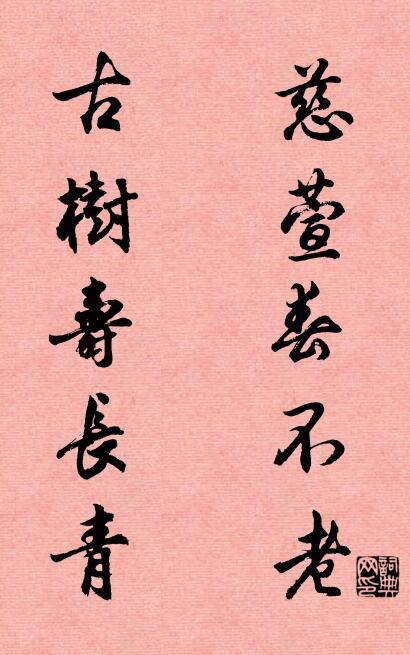 慈萱春不老
古樹壽長青
詞典网印